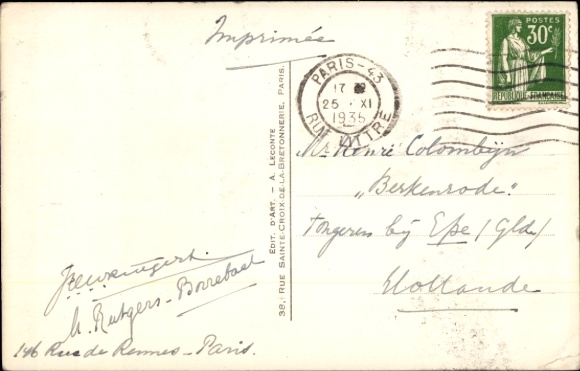 Imprimée
POSTES
30c
RÉPUBLIQUE FRANÇAISE
PARIS-43
17
25 · XI
1935
RUE LITTRÉ
Mr Henri Colombijn
„Berkenrode."
Tongeren bij Epe (Gld)
Hollande
ÉDIT. D'ART. - A. LECONTE
38, RUE SAINTE-CROIX-DE-LA-BRETONNERIE, PARIS.
Rutgers-Borrebach
146 Rue de Rennes-Paris.